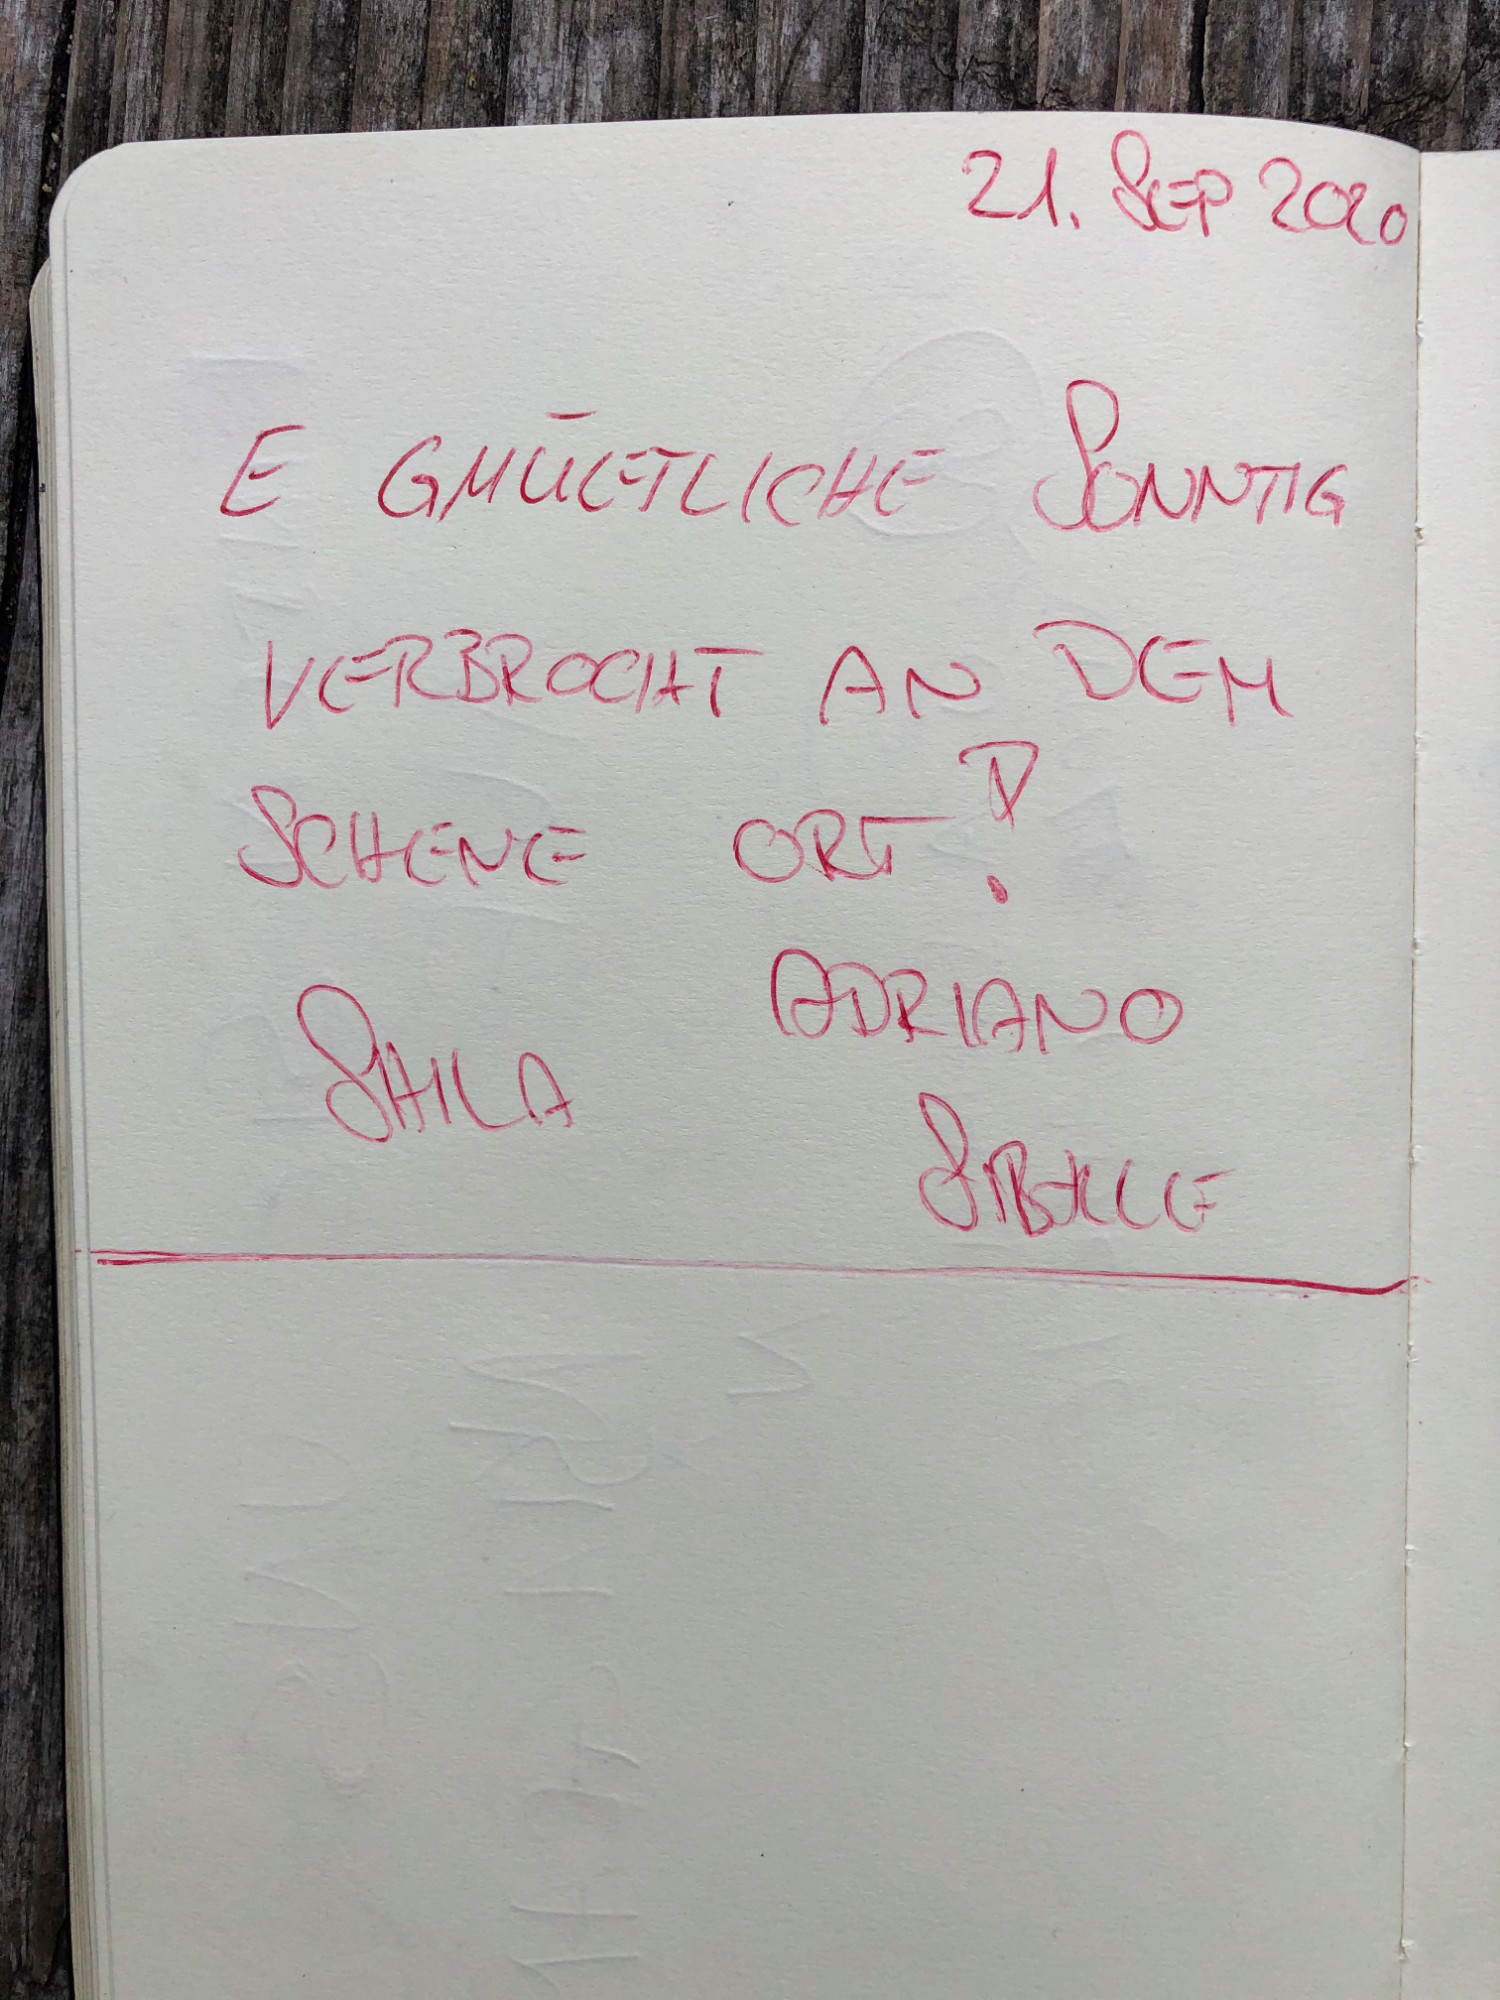 21. SEP 2020
E GMÜETLICHE SONNTIG
VERBROCHT AN DEM
SCHENE ORT!
ADRIANO
SHILA
SIBYLLE